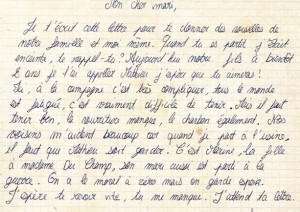 Mon cher mari,
Je t'écrit cette lettre pour te donner des nouvelles de
notre famille et moi même. Quand tu es partit j'était
enceinte, te rappel-tu? Aujourd'hui notre fils à bientôt
2 ans je l'ai appeler Mathieu j'espère que tu aimeras!
Tu, à la campagne c'est très compliquer, tous le monde
est fatigué, c'est vraiment difficile de tenir. Mais il faut
tenir bon, la nourriture manque, le charbon également. Nos
voisins m'aident beaucoup car quand je part à l'usine,
il faut que Mathieu soit garder! C'est Marine la fille
à madame Du Champ, son mari aussi est parti à la
guerre. On a le moral à zéro mais on garde espoir.
J'espère te revoir vite, tu me manque. J'attend ta lettre.